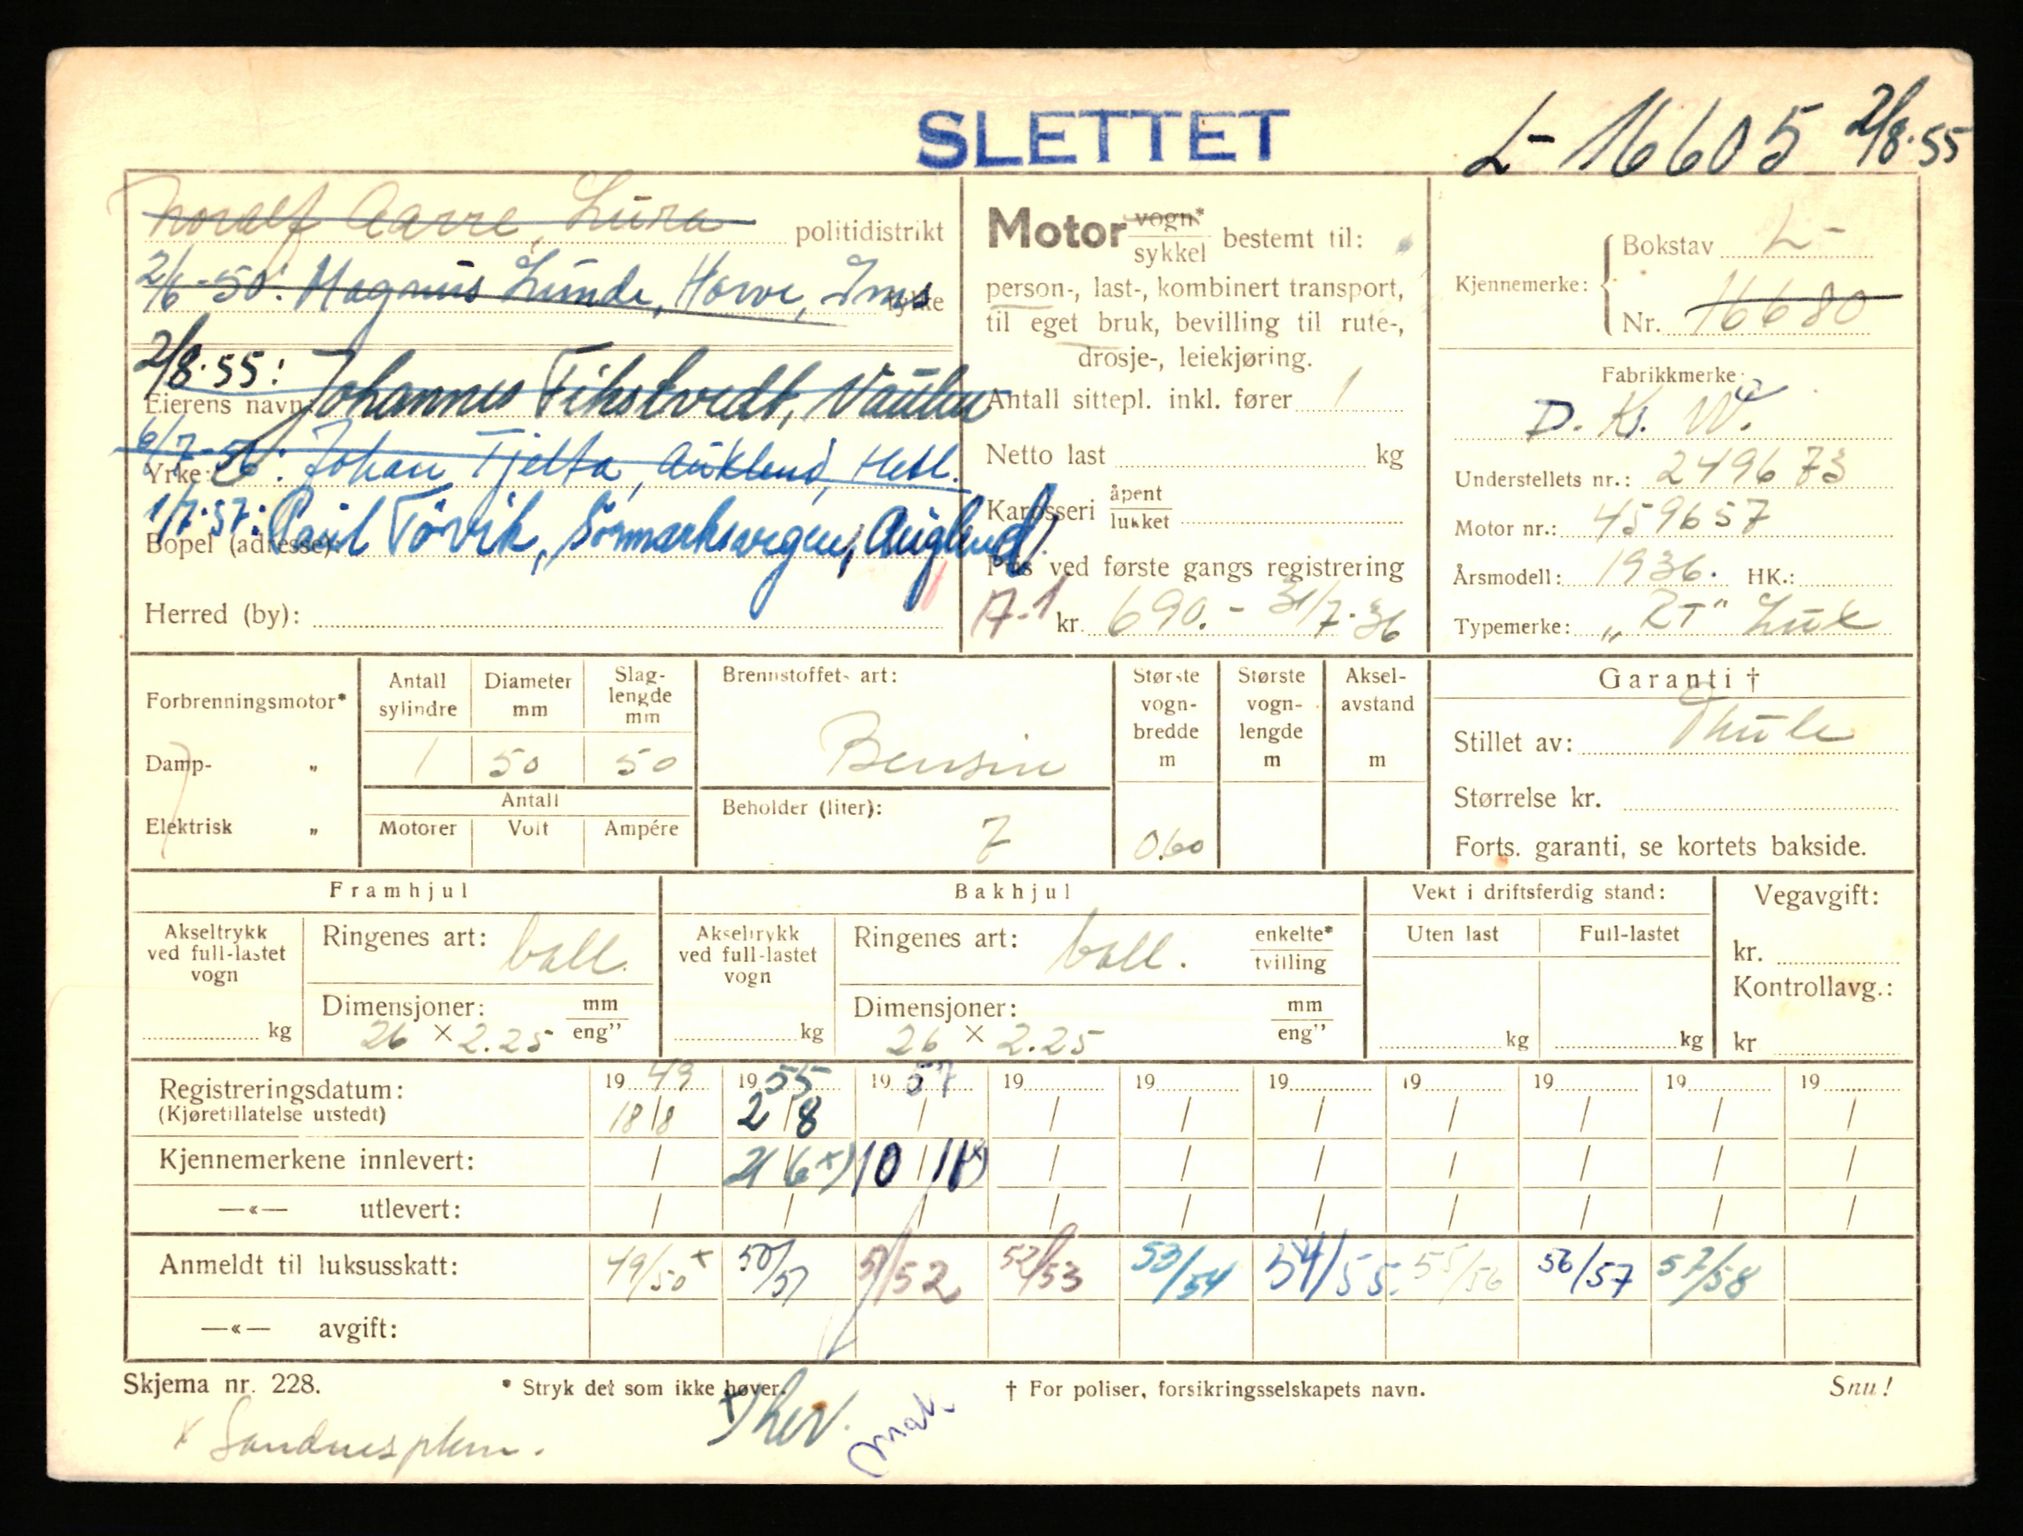 SLETTET
L- 16605 2/8·55
Aarre, Lura politidistrikt
2/6-50: Magnus Lunde, Horve, Ims rykke
2/8·55:
Eierens navn: Johannes Fikstvedt, Vaulen
6/7-56: Johan Tjelta, Auklend, Hetl.
Yrke:
1/7·57: Paul Törvik, Sörmarksvegen, Auglend
Bopel (adresse):
Herred (by):
Motor vogn* sykkel bestemt til:
person-, last-, kombinert transport,
til eget bruk, bevilling til rute-,
drosje-, leiekjøring.
Antall sittepl. inkl. fører 1
Netto last kg
Karosseri åpent lukket
Pris ved første gangs registrering
A-1 kr. 690.- 31/7·36
Kjennemerke: Bokstav L-
Nr. 16680
Fabrikkmerke:
D. K. W.
Understellets nr.: 249673
Motor nr.: 459657
Årsmodell: 1936. HK.:
Typemerke: „RT" Lux
Forbrenningsmotor*
Damp- "
Elektrisk "
Antall sylindre Diameter mm Slag-lengde mm
1 50 50
Antall
Motorer Volt Ampére
Brennstoffets art:
Bensin
Beholder (liter):
7
Største vogn-bredde m
0.60
Største vogn-lengde m
Aksel-avstand m
Garanti †
Stillet av: Thule
Størrelse kr.
Forts. garanti, se kortets bakside.
Framhjul
Akseltrykk ved full-lastet vogn
kg
Ringenes art: ball.
Dimensjoner: mm eng"
26 × 2.25
Bakhjul
Akseltrykk ved full-lastet vogn
kg
Ringenes art: ball. enkelte* tvilling
Dimensjoner: mm eng"
26 × 2.25
Vekt i driftsferdig stand:
Uten last Full-lastet
kg kg
Vegavgift:
kr.
Kontrollavg.:
kr
Registreringsdatum: 19 49 19 55 19 57 19 19 19 19 19 19 19
(Kjøretillatelse utstedt) 18/8 2/8 / / / / / / / /
Kjennemerkene innlevert: / 21/6 x) 10/11 x) / / / / / / /
—«— utlevert: / / / / / / / / /
Anmeldt til luksusskatt: 49/50 x 50/51 51/52 52/53 53/54 54/55. 55/56 56/57 57/58
—«— avgift:
Skjema nr. 228. * Stryk det som ikke høver. † For poliser, forsikringsselskapets navn. Snu!
x Sandnes